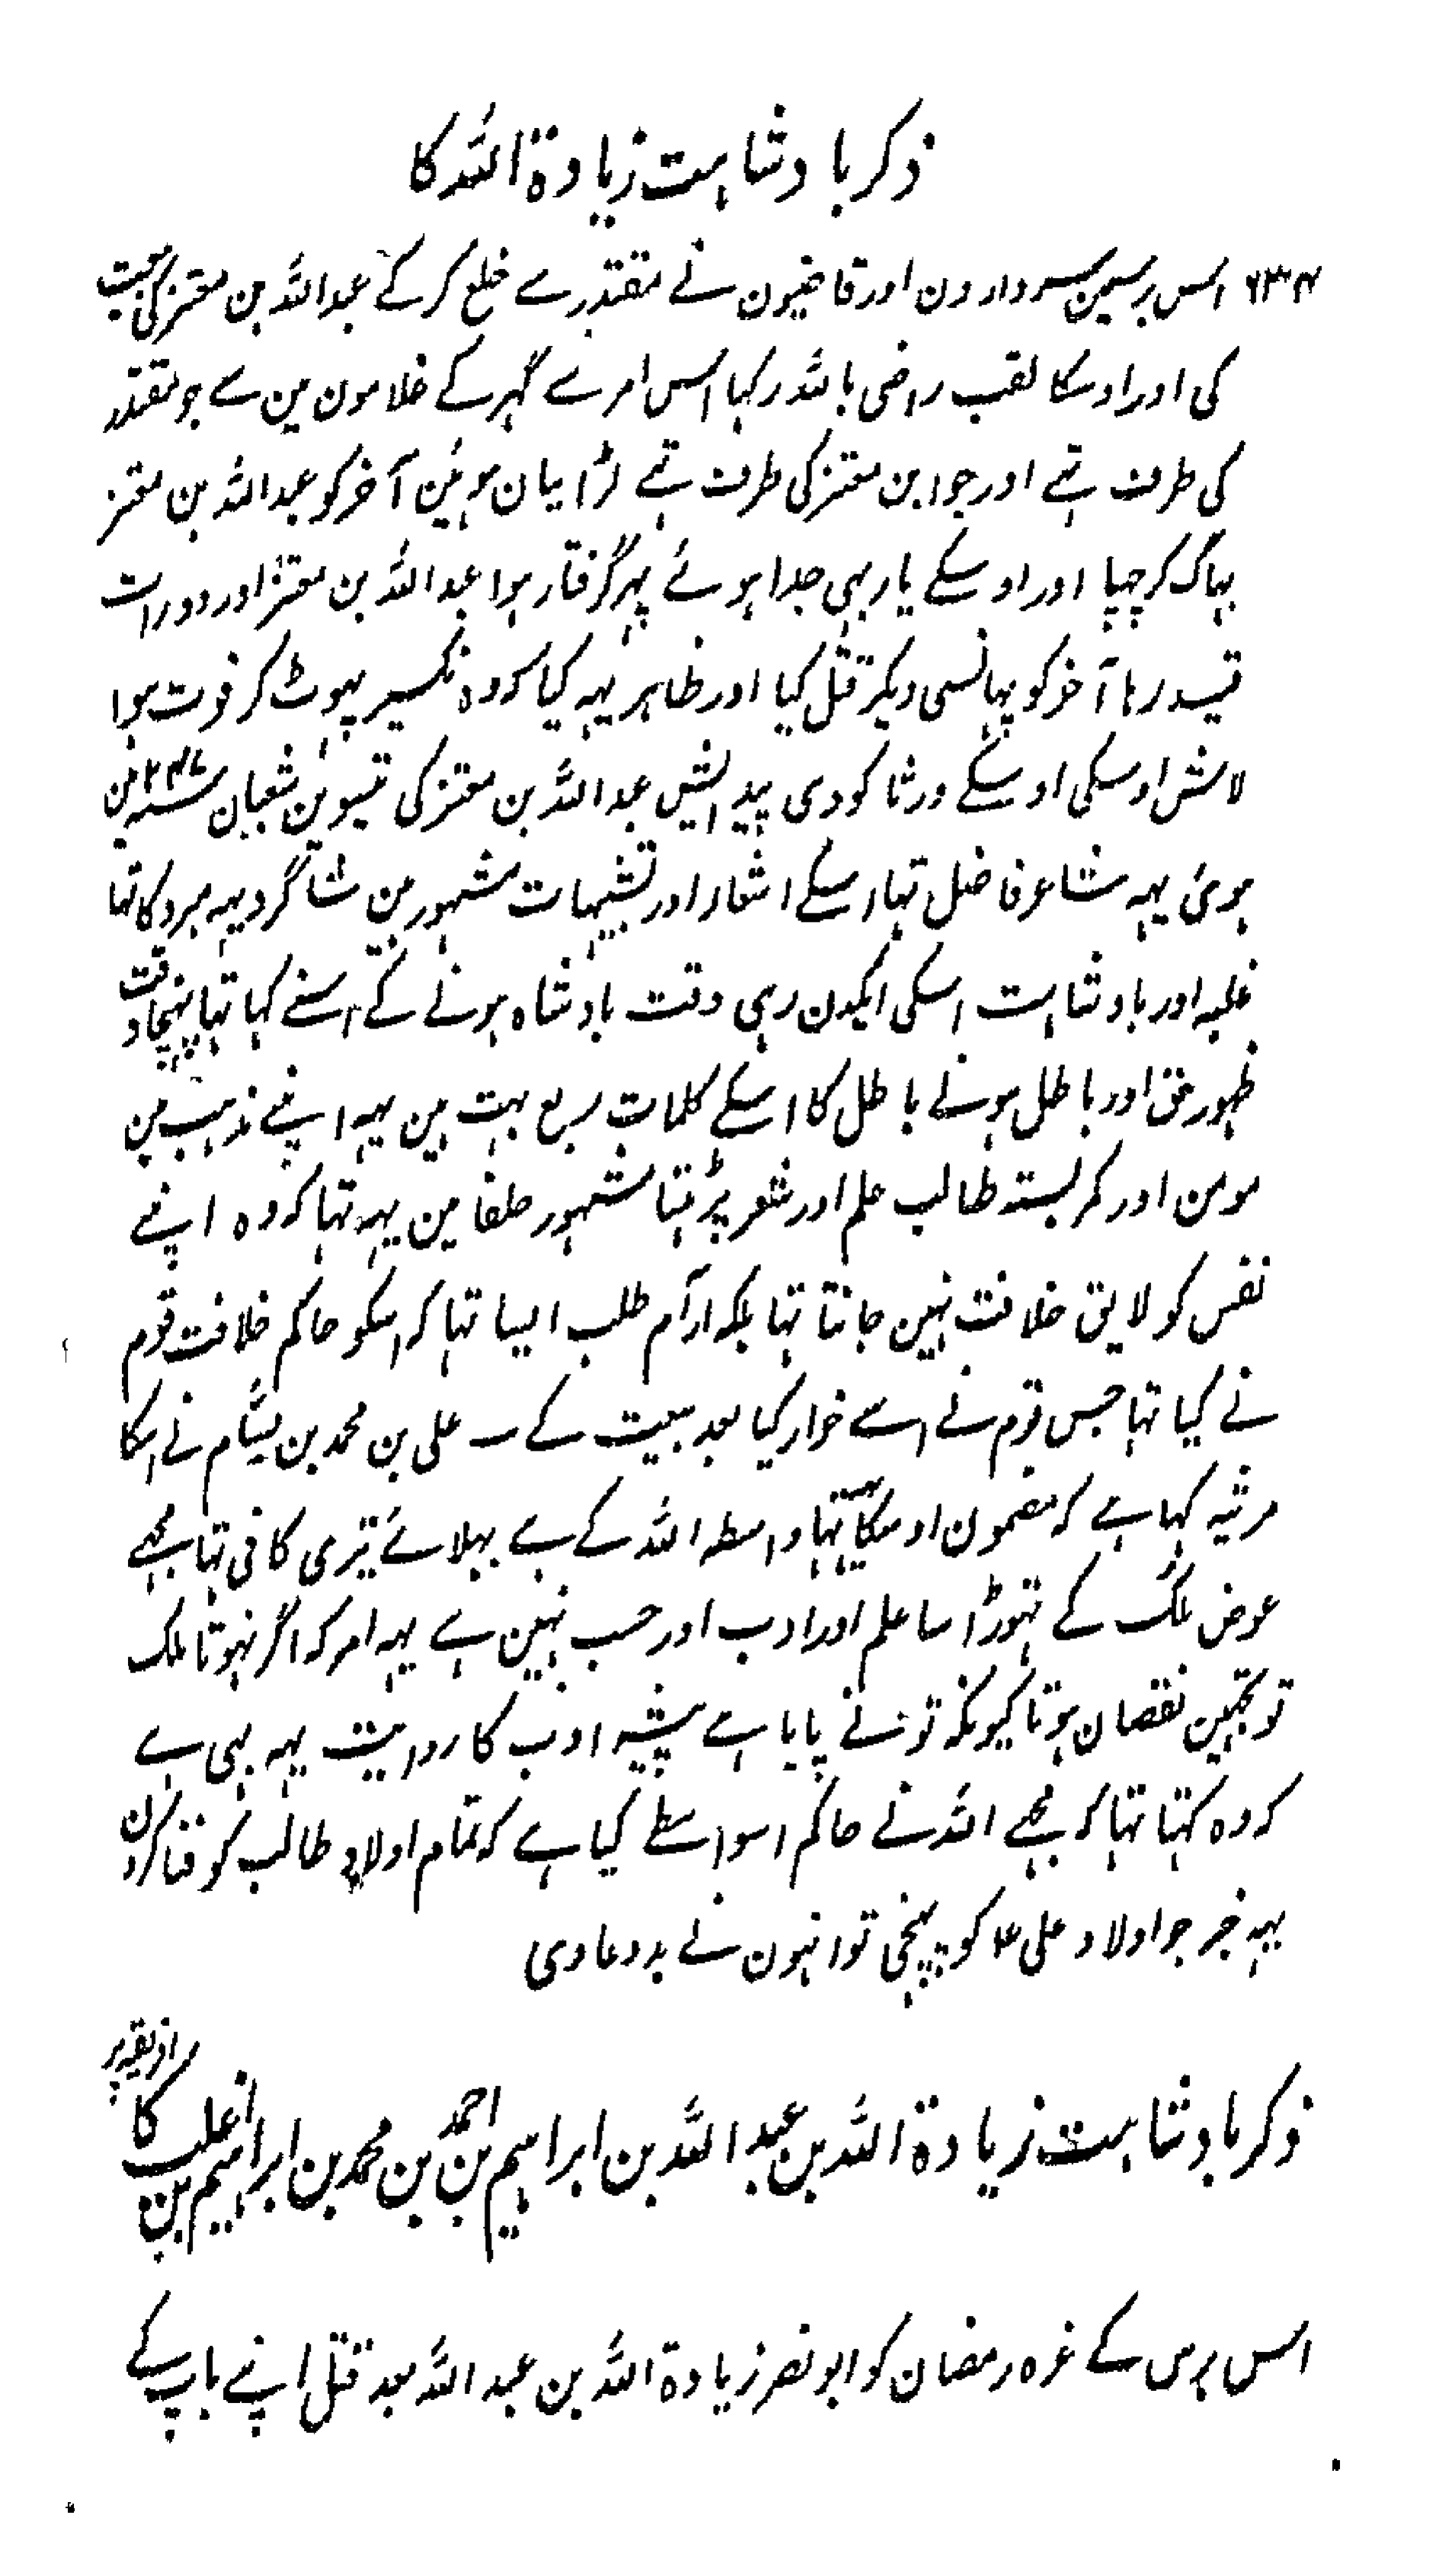 ذکر بادشاہت زیادۃ اللہ کا
۶۳۴ اس برسمین سردارون اور قاضیون نے مقتدر سے خلع کر کے عبد اللہ بن معتز کی بیعت
کی اور اوسکا لقب راضی باللہ رکہا اس امر سے گہر کے غلامون مین سے جو مقتدر
کی طرف تہے اور جو ابن معتز کی طرف تہے لڑائیان ہوئین آخر کو عبد اللہ بن معتز
بہاگ کر چہپا اور اوسکے یار بہی جدا ہوئے پہر گرفتار ہوا عبد اللہ بن معتز اور دو رات
قید رہا آخر کو پہانسی دیکر قتل کیا اور ظاہر یہہ کیا کہ وہ نکسیر پہوٹ کر فوت ہوا
لاش اوسکی اوسکے ورثا کو دی پیدائش عبد اللہ بن معتز کی تیسوین شعبان سنہ ۲۴۷ مین
ہوئی یہہ شاعر فاضل تہا اسکے اشعار اور تشبیہات مشہور ہین شاگرد یہہ مبرد کا تہا
غلبہ اور بادشاہت اسکی ایکدن رہی وقت بادشاہ ہونے کے اسنے کہا تہا پہنچا وقت
ظہور حق اور باطل ہونے باطل کا اسکے کلمات بہت ہین یہہ اپنے مذہب مین
مومن اور کمر بستہ طالب علم اور شعر پڑہتا مشہور خلفا مین یہہ تہا کہ وہ اپنے
نفس کو لایق خلافت نہین جانتا تہا بلکہ آرام طلب ایسا تہا کہ اسکو حاکم خلافت قوم
نے کیا تہا جس قوم نے اسے خوار کیا بعد بیعت کے ۔ علی بن محمد بن بسّام نے اسکا
مرثیہ کہا ہے کہ مضمون اوسکا یہہ تہا واسطہ اللہ کے ہے بہلائے تیری کافی تہا تجہے
عوض ملک کے تہوڑا سا علم اور ادب اور حسب نہین ہے یہہ امر کہ اگر نہوتا ملک
تو تجہین نقصان ہوتا کیونکہ تو نے پایا ہے پیشہ ادب کا روایت یہہ بہی ہے
کہ وہ کہتا تہا کہ مجہے اللہ نے حاکم اسواسطے کیا ہے کہ تمام اولاد طالب کو فنا کردون
یہہ خبر جو اولاد علی ع کو پہنچی تو انہون نے بددعا دی
ذکر بادشاہت زیادۃ اللہ بن عبد اللہ بن ابراہیم بن احمد بن محمد بن ابراہیم بن اغلب کا افریقہ پر
اس برس کے غرہ رمضان کو ابو نصر زیادۃ اللہ بن عبد اللہ بعد قتل اپنے باپ کے